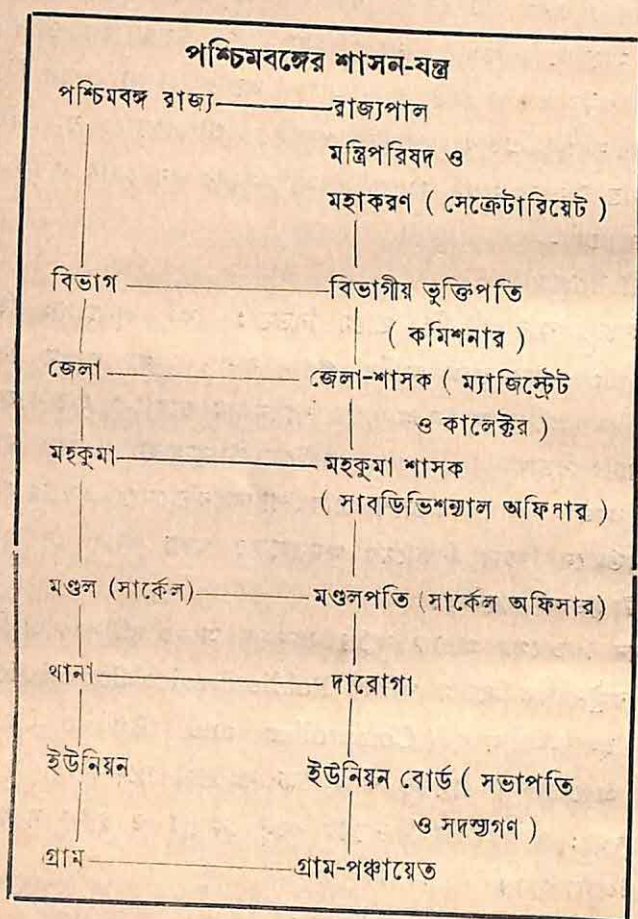 পশ্চিমবঙ্গের শাসন-যন্ত্র
পশ্চিমবঙ্গ রাজ্য রাজ্যপাল
মন্ত্রিপরিষদ ও
মহাকরণ ( সেক্রেটারিয়েট )
বিভাগ বিভাগীয় ভুক্তিপতি
( কমিশনার )
জেলা জেলা-শাসক ( ম্যাজিস্ট্রেট
ও কালেক্টর )
মহকুমা মহকুমা শাসক
( সাবডিভিশন্যাল অফিসার )
মণ্ডল (সার্কেল) মণ্ডলপতি (সার্কেল অফিসার)
থানা দারোগা
ইউনিয়ন ইউনিয়ন বোর্ড ( সভাপতি
ও সদস্যগণ )
গ্রাম গ্রাম-পঞ্চায়েত